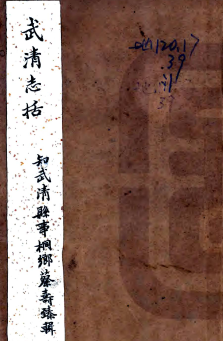 武清志括
知武清縣事桐鄉蔡壽臻輯
120.17
39